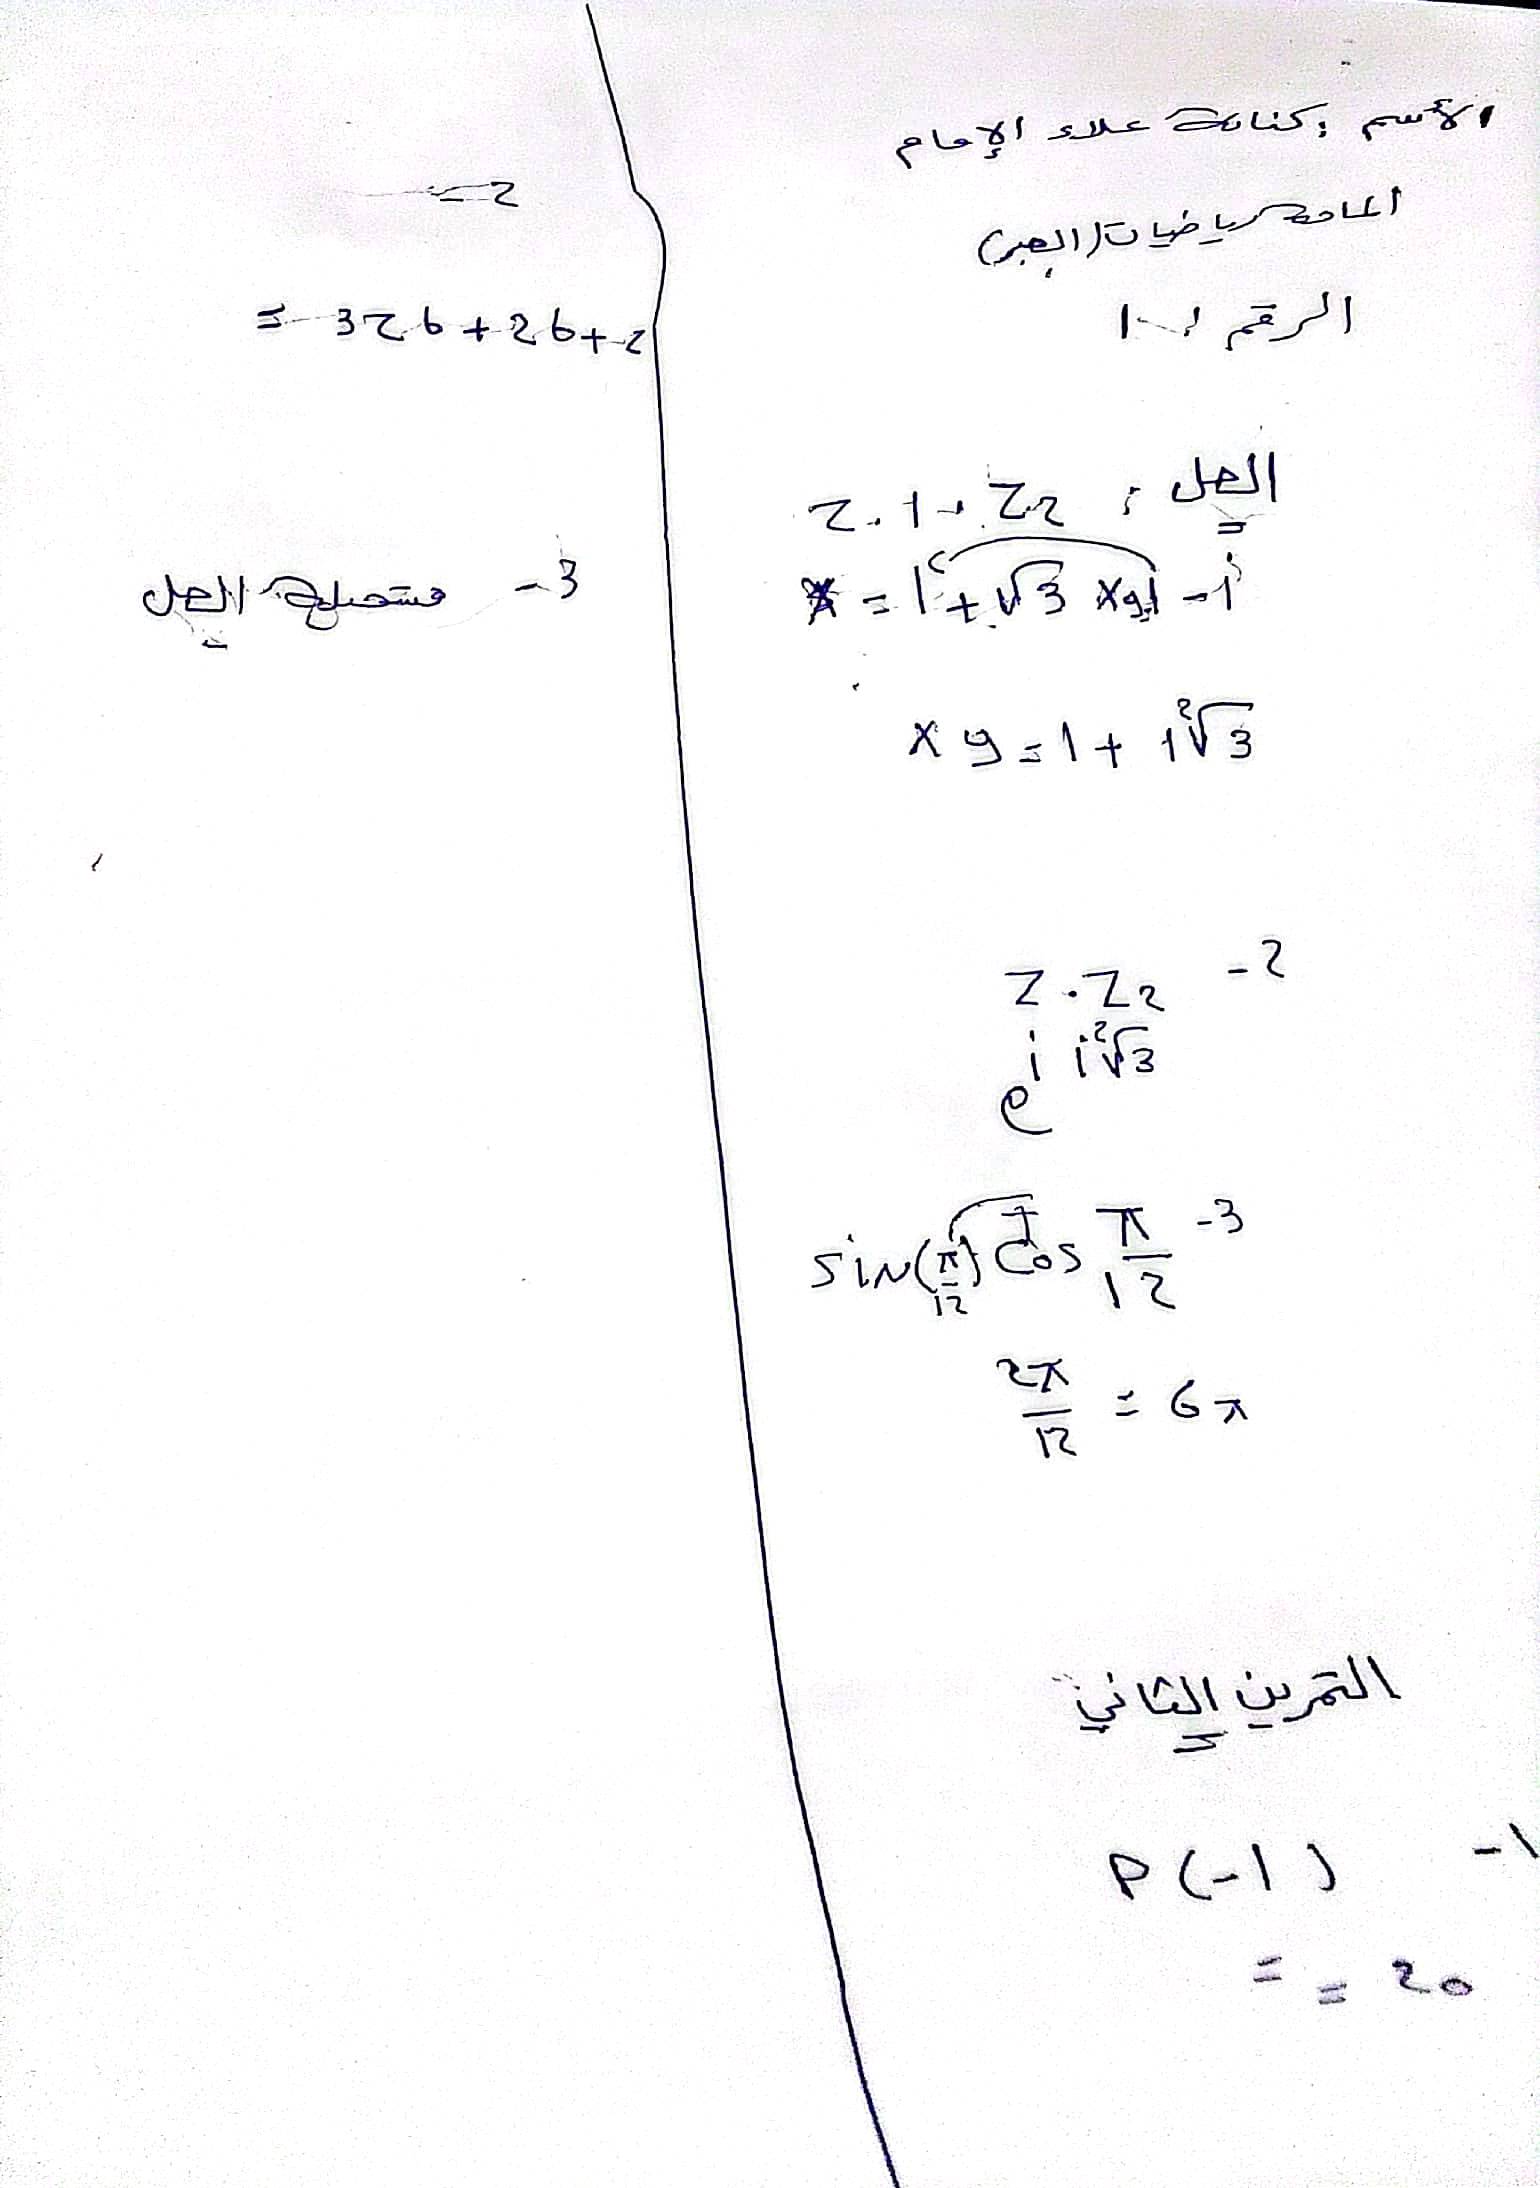 الأسم : كنانة علاء الإمام
المادة رياضيات (الجبر)
الرقم
الحل : Z.1 . Z2
= 1 + √3 xy - i
xy = 1 + i²√3
2 - Z . Z2
e^i i²√3
3 - sin(π/12) cos π/12
2π/12 = 6π
التمرين الثاني
1 - P(-1)
= = 20
2 -
= 3Zb + 2b + 2
3 - مستحيلة الحل